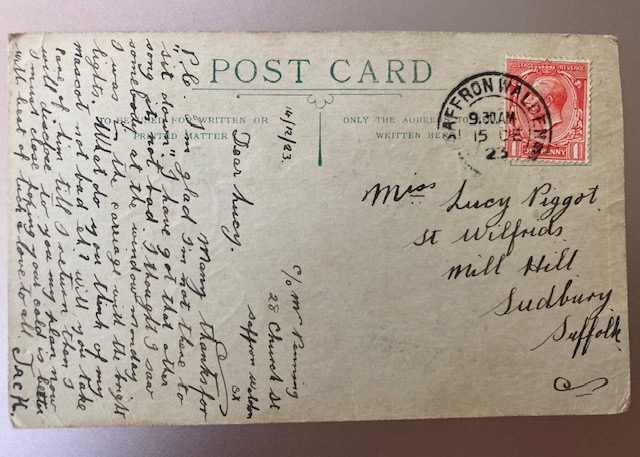 POST CARD
TO BE USED FOR WRITTEN OR
PRINTED MATTER
ONLY THE ADDRESS TO
WRITTEN HERE
POSTAGE REVENUE
1 PENNY 1
SAFFRON WALDEN
9.30AM
15 DE
23
Miss Lucy Piggot.
St Wilfrids
Mill Hill
Sudbury
Suffolk.
c/o Mr
28 Church St
Saffron Walden
Ex
14/12/23.
Dear Lucy.
Many thanks for
P.C. I'm glad I'm not there to
"sit down". I have got that other
song not bad. I thought I saw
somebody at the window monday
I was in the carriage with the bright
lights. What do you think of my
Mascot not bad eh? will you take
care of him till I return then I
will disclose to you my plan now
I must close hoping your cold is better
with best of luck & love to all. Jack.